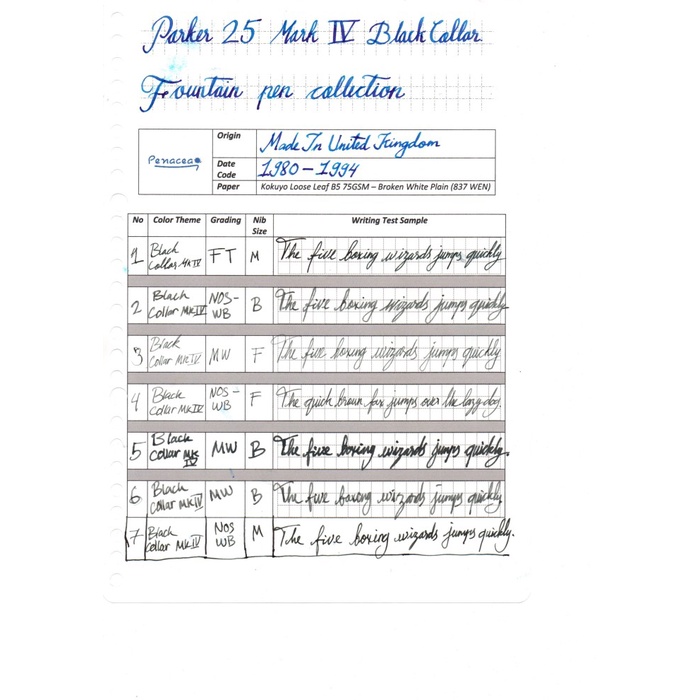 Parker 25 Mark IV Black Collar
Fountain pen collection
Penacea
Origin Made In United Kingdom
Date Code 1980-1994
Paper Kokuyo Loose Leaf B5 75GSM – Broken White Plain (837 WEN)
No Color Theme Grading Nib Size Writing Test Sample
1 Black Collar Mk IV FT M The five boxing wizards jumps quickly
2 Black Collar Mk IV NOS-WB B The five boxing wizards jumps quickly
3 Black Collar Mk IV MW F The five boxing wizards jumps quickly
4 Black Collar Mk IV NOS-WB F The quick brown fox jumps over the lazy dog.
5 Black Collar Mk IV MW B The five boxing wizards jumps quickly.
6 Black Collar Mk IV MW B The five boxing wizards jumps quickly.
7 Black Collar Mk IV NOS WB M The five boxing wizards jumps quickly.